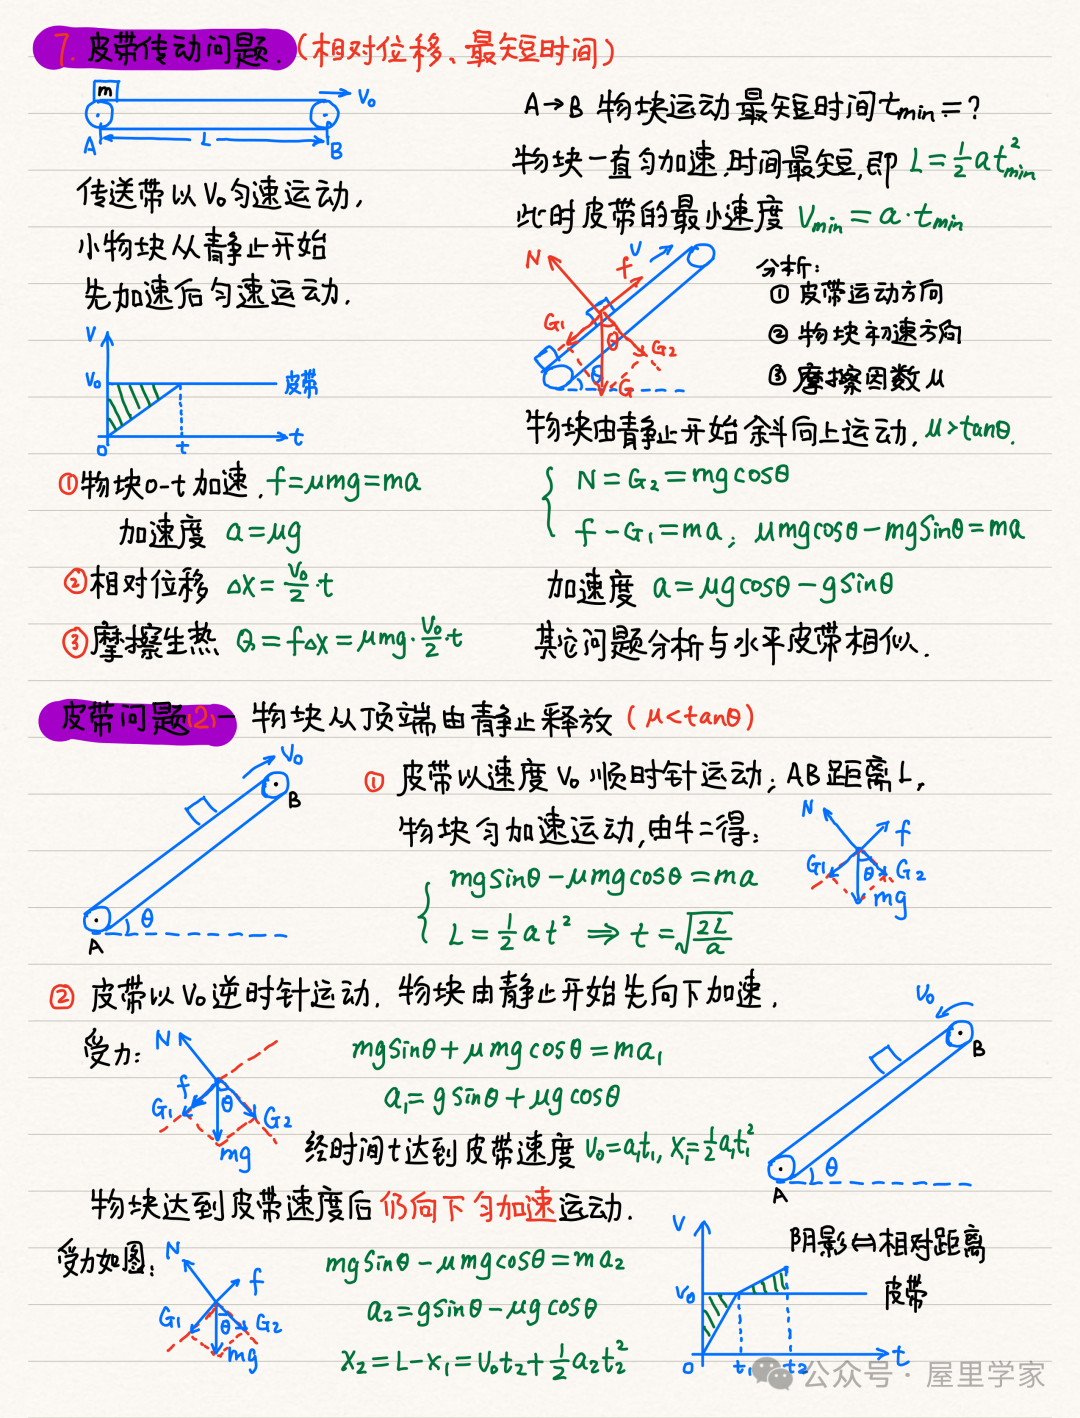 7. 皮带传动问题.(相对位移、最短时间)
m
V₀
A
L
B
传送带以V₀匀速运动,
小物块从静止开始
先加速后匀速运动.
V
V₀
皮带
0
t
t
①物块0-t加速.f=μmg=ma
加速度 a=μg
②相对位移 Δx=V₀/2·t
③摩擦生热 Q=fΔx=μmg·V₀/2·t
A→B 物块运动最短时间tmin=?
物块一直匀加速,时间最短,即 L=1/2at²min
此时皮带的最小速度 Vmin=a·tmin
N
f
V
G₁
θ
G₂
θ
G
分析:
① 皮带运动方向
② 物块初速方向
③ 摩擦因数μ
物块由静止开始斜向上运动,μ>tanθ.
N=G₂=mgcosθ
f-G₁=ma; μmgcosθ-mgsinθ=ma
加速度 a=μgcosθ-gsinθ
其它问题分析与水平皮带相似.
皮带问题(2)-物块从顶端由静止释放(μ<tanθ)
V₀
B
θ
A
① 皮带以速度V₀顺时针运动;AB距离L,
物块匀加速运动,由牛二得:
mgsinθ-μmgcosθ=ma
L=1/2at² ⇒ t=√2L/a
N
f
G₁
θ
G₂
mg
② 皮带以V₀逆时针运动.物块由静止开始先向下加速.
受力:
N
f
G₁
θ
G₂
mg
mgsinθ+μmgcosθ=ma₁
a₁=gsinθ+μgcosθ
经时间t达到皮带速度 V₀=a₁t₁, X₁=1/2a₁t₁²
V₀
B
θ
A
物块达到皮带速度后仍向下匀加速运动.
受力如图:
N
f
G₁
θ
G₂
mg
mgsinθ-μmgcosθ=ma₂
a₂=gsinθ-μgcosθ
X₂=L-x₁=V₀t₂+1/2a₂t₂²
V
V₀
0
t₁
t₂
t
阴影⇔相对距离
皮带
公众号·屋里学家